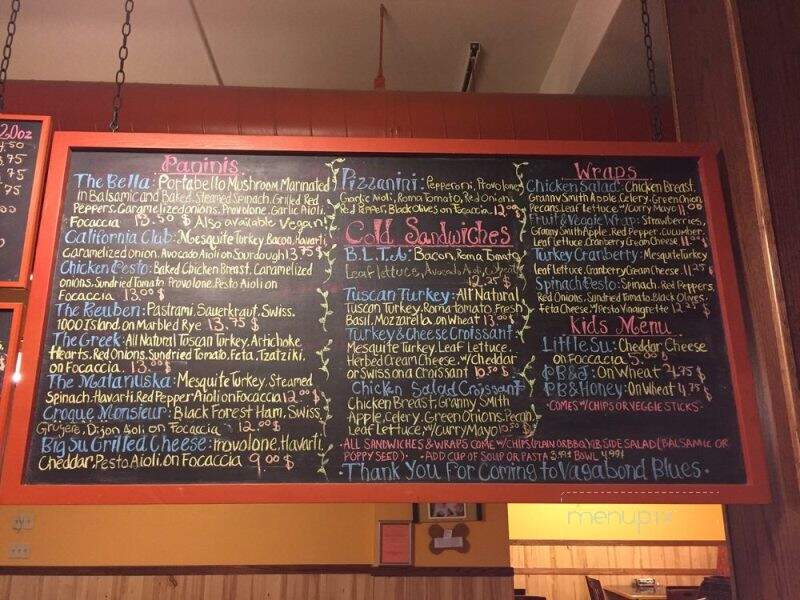 20oz
4.50
.75
75
75
Paninis
The Bella: Portabello Mushroom Marinated
in Balsamic and Baked, Steamed Spinach, Grilled Red
Peppers, Caramelized onions, Provolone, Garlic Aioli,
Focaccia 13.50 $ Also available Vegan!
California Club: Mesquite Turkey, Bacon, Havarti,
Caramelized onion, Avocado Aioli on Sourdough 13.75 $
Chicken Pesto: Baked Chicken Breast, Caramelized
onions, Sundried Tomato, Provolone, Pesto Aioli on
Focaccia 13.00 $
The Reuben: Pastrami, Sauerkraut, Swiss,
1000 Island on Marbled Rye 13.75 $
The Greek: All Natural Tuscan Turkey, Artichoke
Hearts, Red Onions, Sundried Tomato, Feta, Tzatziki,
on Focaccia. 13.00 $
The Matanuska: Mesquite Turkey, Steamed
Spinach, Havarti, Red Pepper Aioli on Focaccia 12.00 $
Croque Monsieur: Black Forest Ham, Swiss,
Gruyere, Dijon Aoli, on Focaccia 12.00 $
Big Su Grilled Cheese: Provolone, Havarti,
Cheddar, Pesto Aioli, on Focaccia 9.00 $
Pizzanini: Pepperoni, Provolone,
Garlic Aioli, Roma Tomato, Red Onion,
Red Pepper, Black Olives on Focaccia 12.00 $
Cold Sandwiches
B.L.T.A: Bacon, Roma Tomato,
Leaf lettuce, Avocado Aioli,
12.25 $
Tuscan Turkey: All Natural
Tuscan Turkey, Roma tomato, Fresh
Basil, Mozzarella, on Wheat 13.00 $
Turkey & Cheese Croissant:
Mesquite Turkey, Leaf Lettuce,
Herbed Cream Cheese, w/ Cheddar
or Swiss on a Croissant 10.50 $
Chicken Salad Croissant
Chicken Breast, Granny Smith
Apple, Celery, Green Onions, Pecan,
Leaf Lettuce, w/ Curry Mayo 10.50 $
Wraps
Chicken Salad: Chicken Breast,
Granny Smith Apple, Celery, Green Onion,
Pecans, Leaf Lettuce, w/ Curry Mayo 11.00 $
Fruit & Veggie Wrap: Strawberries,
Granny Smith Apple, Red Pepper, Cucumber,
Leaf Lettuce, Cranberry Cream Cheese, 11.00 $
Turkey Cranberry: Mesquite Turkey
Leaf Lettuce, Cranberry Cream Cheese, 11.75 $
Spinach Pesto: Spinach, Red Peppers,
Red Onions, Sundried Tomato, Black Olives,
Feta Cheese, w/ Pesto Vinaigrette 12.25 $
Kids Menu
Little Su: Cheddar Cheese
on Foccacia 5.00 $
PB&J: On Wheat 4.75 $
PB & Honey: On Wheat 4.75 $
•Comes w/ Chips or Veggie Sticks•
•All Sandwiches & Wraps come w/ Chips (Plain or BBQ) or Side Salad (Balsamic or
Poppy Seed). •Add Cup of Soup or Pasta 3.99 $ Bowl 4.99 $
•Thank You For Coming to Vagabond Blues•
menupix